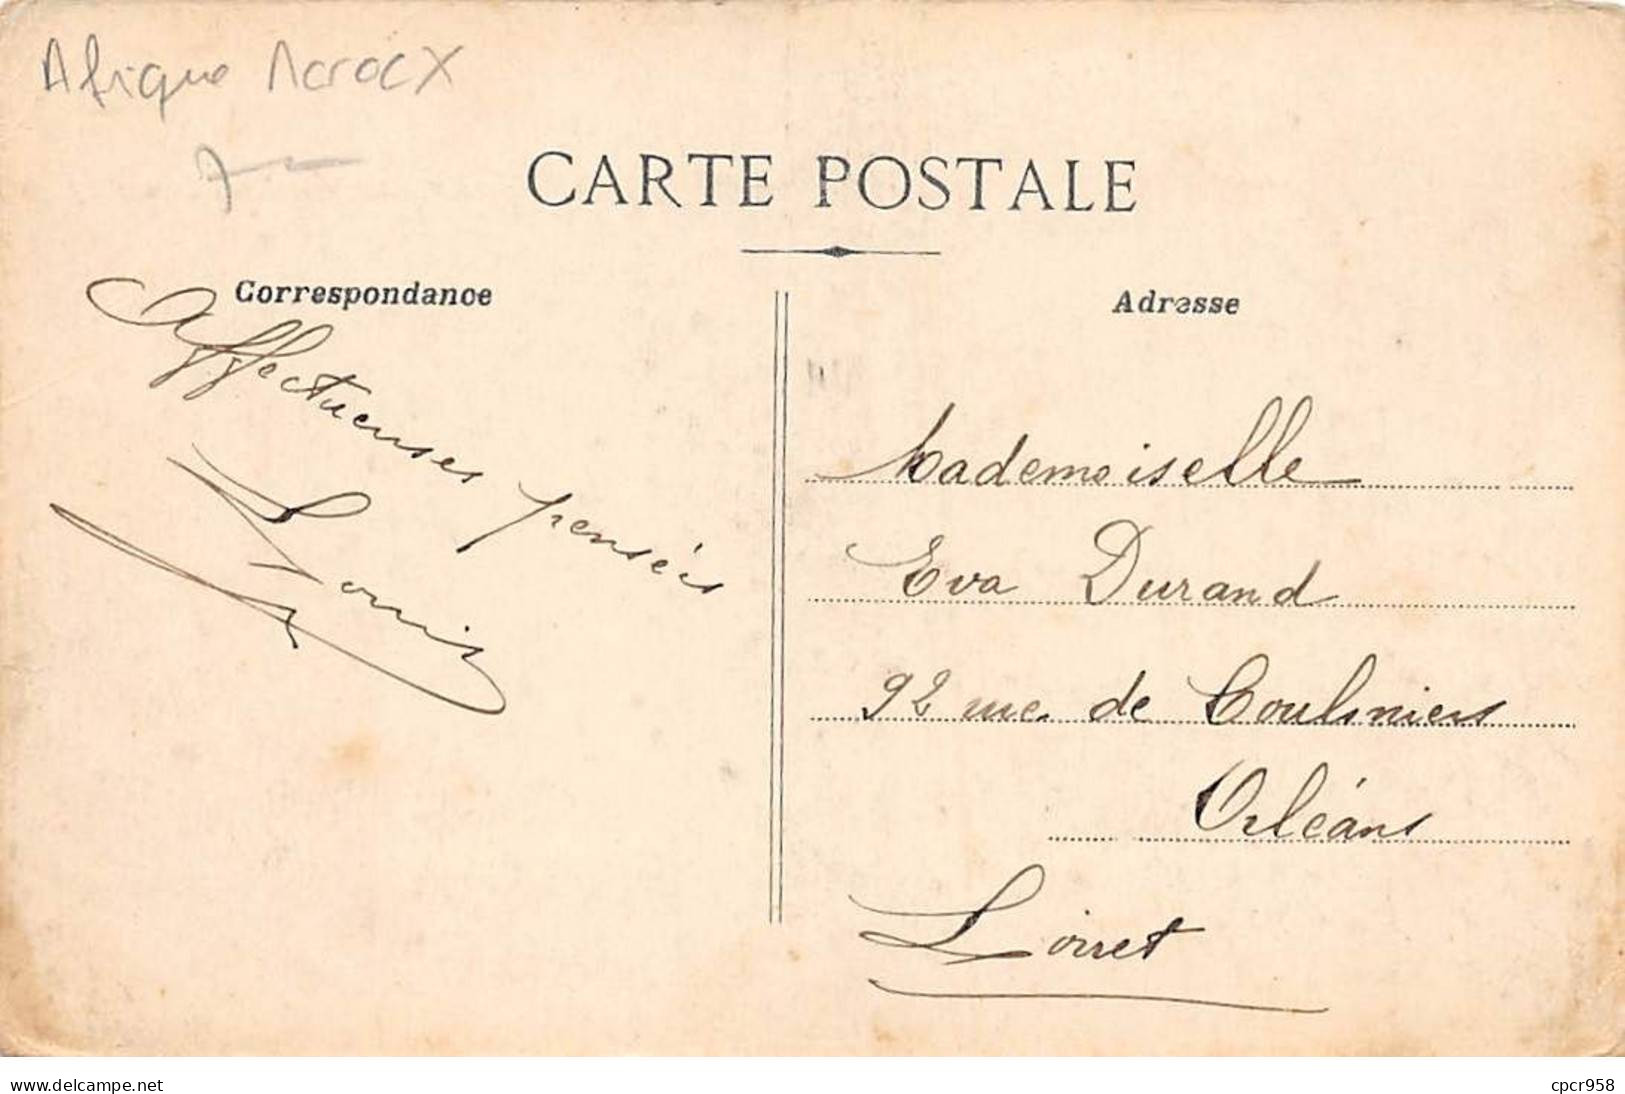 Afrique Maroc X
7 —
CARTE POSTALE
Correspondance
Adresse
Affectueuses pensées
Louis
Mademoiselle
Eva Durand
92 rue de Coulmiers
Orléans
Loiret
www.delcampe.net
cpcr958